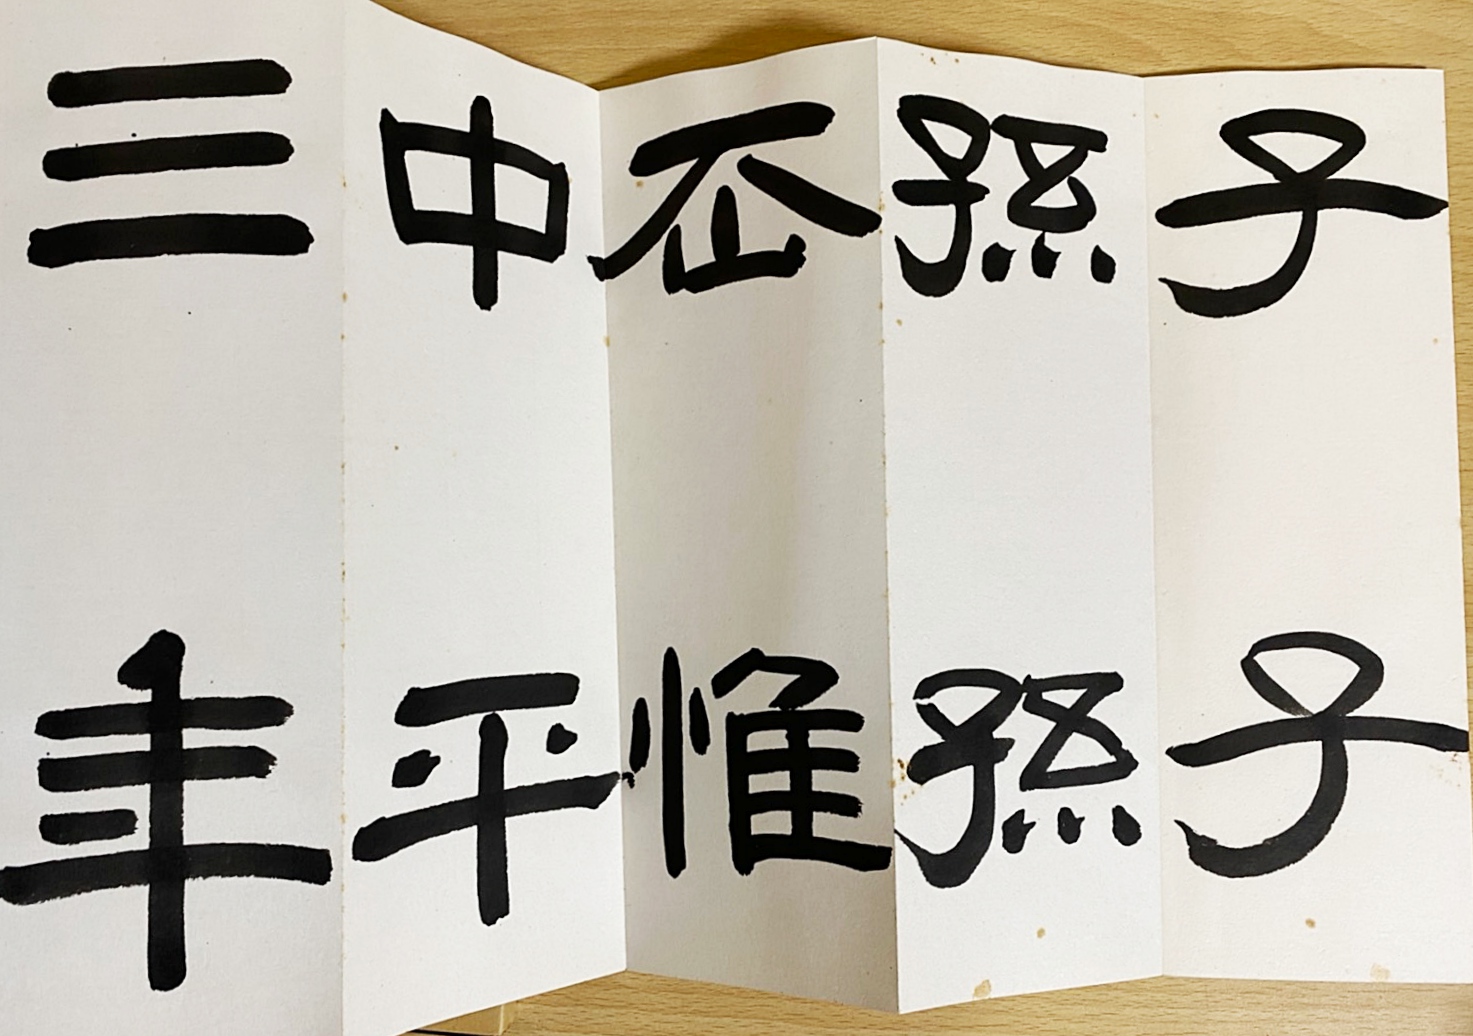 子子
孫孫
惟
中平
三年